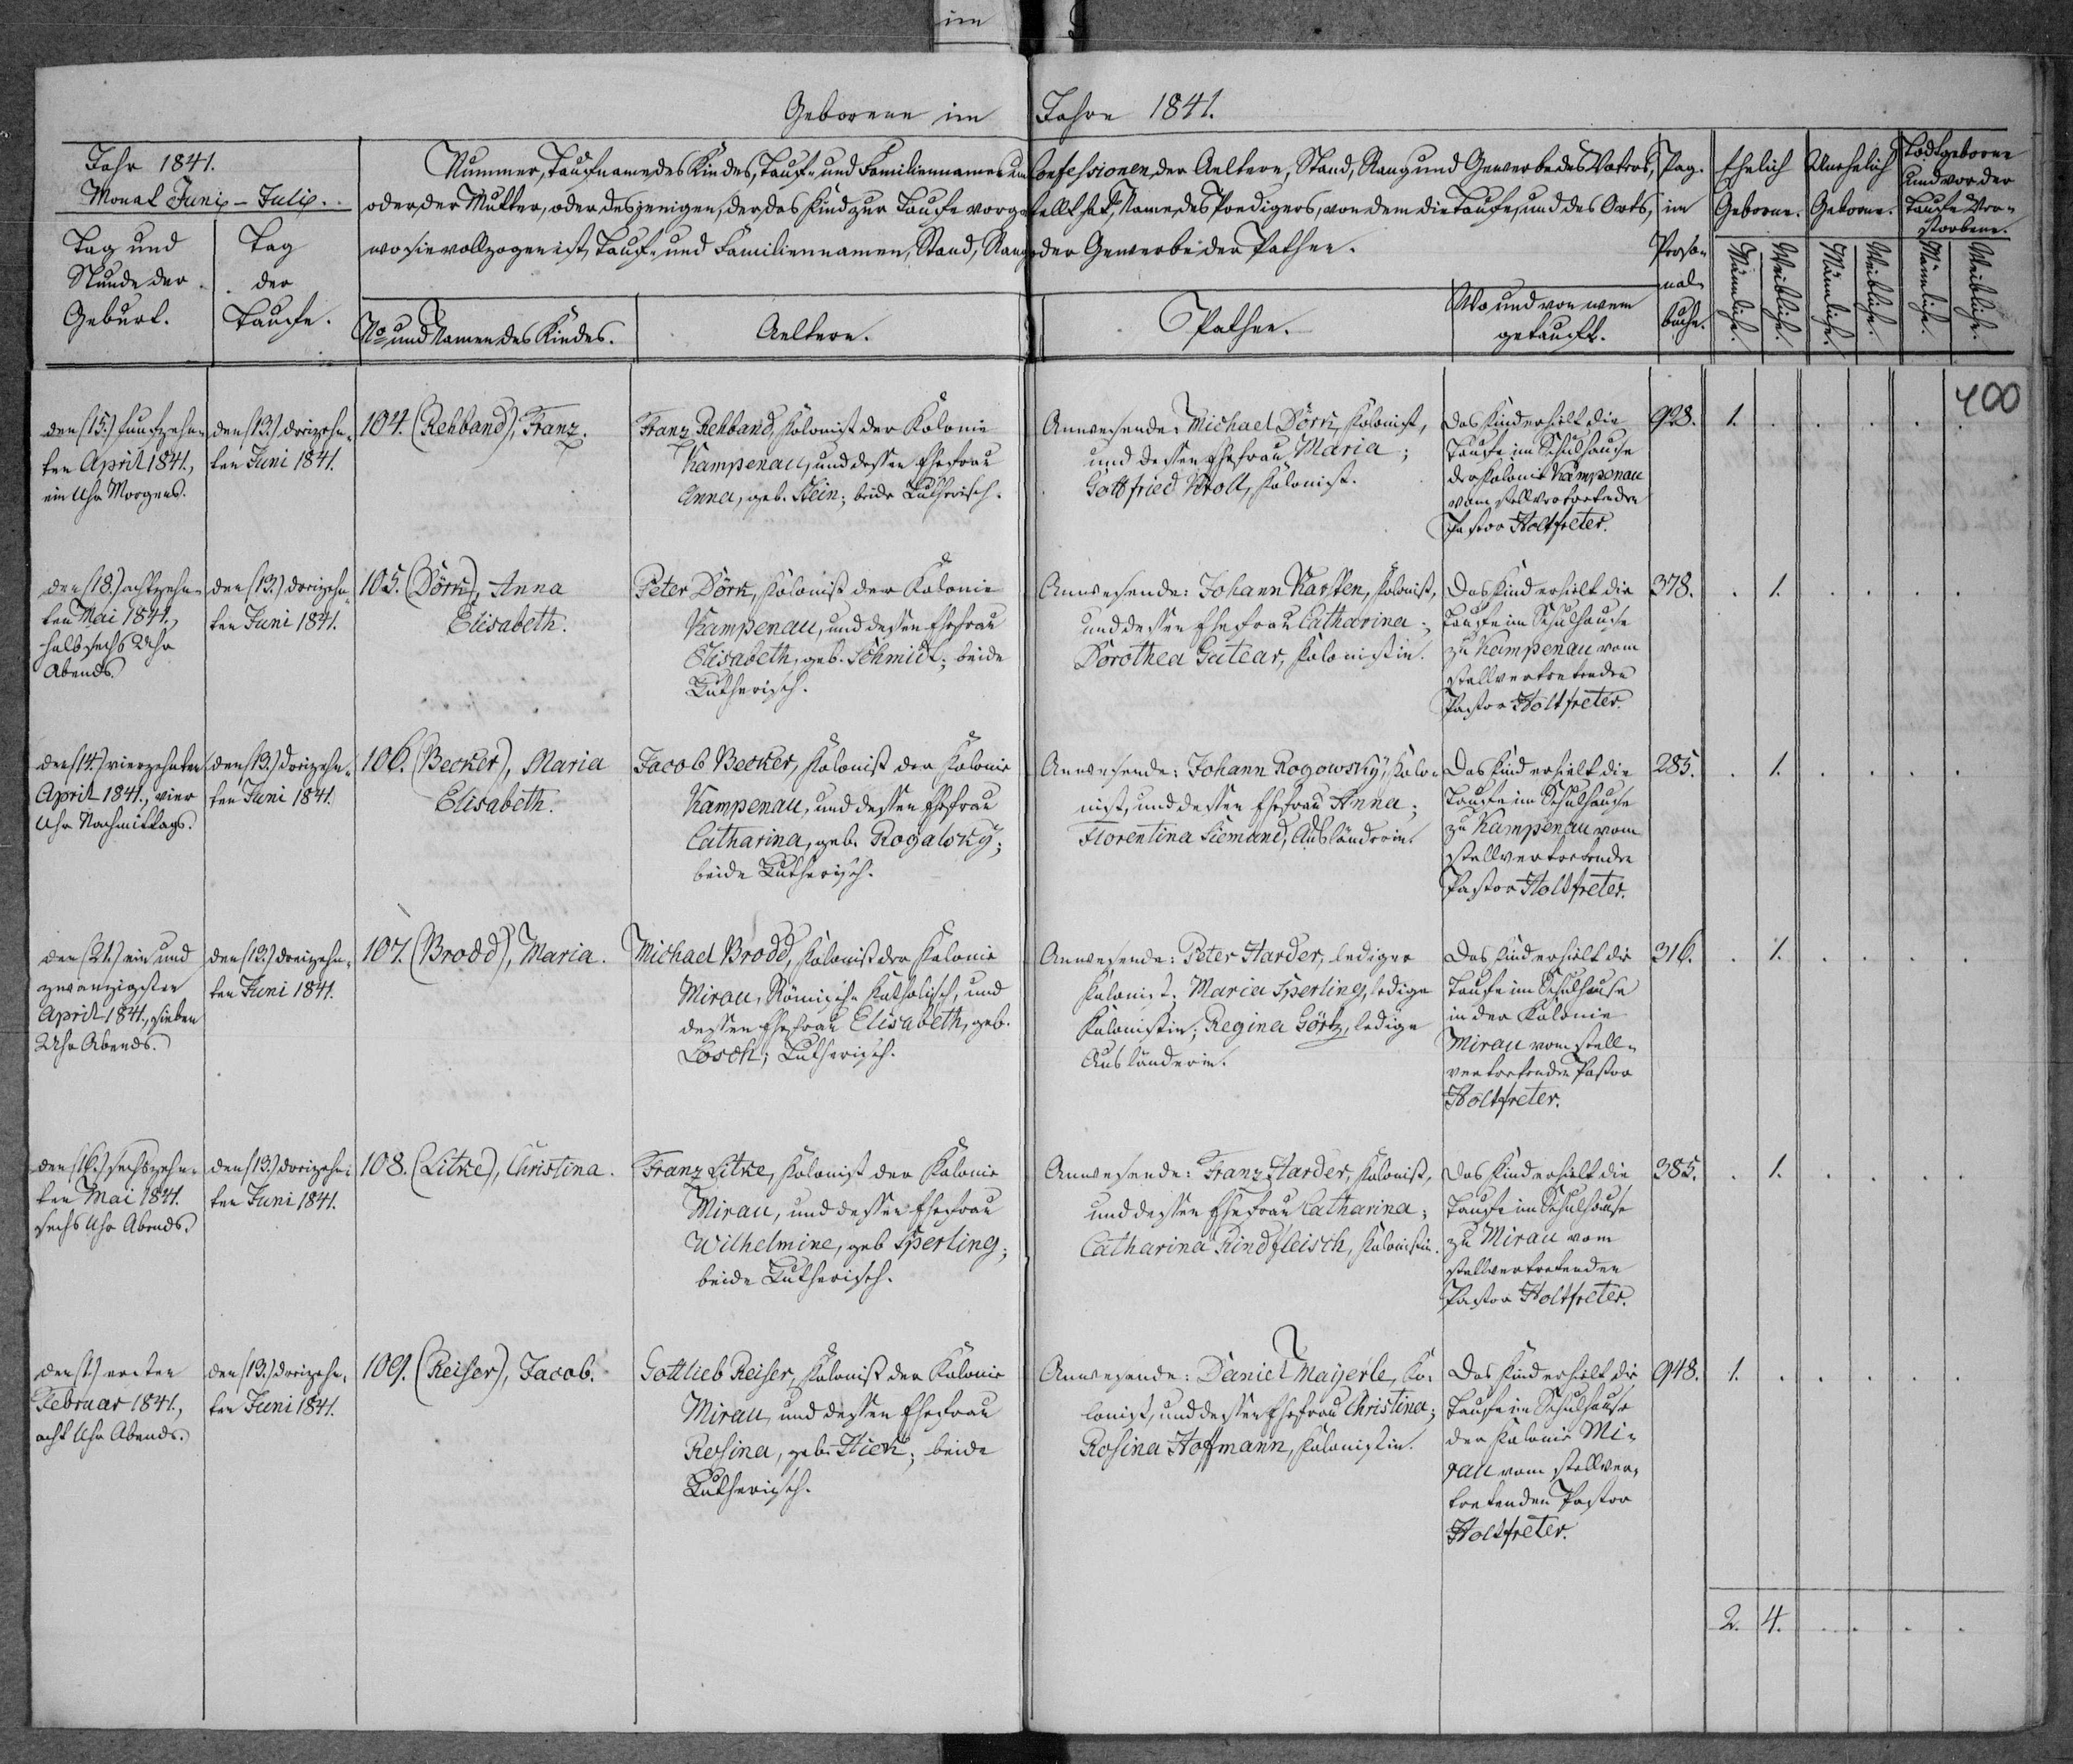 im
Geborene im Jahre 1841.
Jahr 1841.
Monat Juni - Juli.
Tag und
Stunde der
Geburt.
Tag
der
Taufe.
Nummer, Taufname des Kindes, Tauf- und Familiennamen und Confessionen der Aeltern, Stand, Rang und Gewerbe des Vaters,
oder der Mutter, oder desjenigen, der das Kind zur Taufe vorgestellt hat, Name des Predigers, von dem die Taufe, und des Orts,
wo sie vollzogen ist, Tauf- und Familiennamen, Stand, Rang oder Gewerbe der Pathen.
No und Namen des Kindes.
Aeltern.
Pathen.
Wo und von wem
getauft.
Pag.
im
Perso-
nal-
buche.
Ehelich
Geborne.
Unehelich
Geborne.
Todtgeborne
und vor der
Taufe Ver-
storbene.
Männliche.
Weibliche.
Männliche.
Weibliche.
Männliche.
Weibliche.
400
den (15.) funfzehn-
ten April 1841.,
ein Uhr Morgens.
den (13.) dreizehn-
ten Juni 1841.
104. (Rehband), Franz.
Franz Rehband, Kolonist der Kolonie
Kampenau, und dessen Ehefrau
Anna, geb. Klein; beide Lutherisch.
Anwesende: Michael Dörk, Kolonist,
und dessen Ehefrau Maria;
Gottfried Kroll, Kolonist.
Das Kind erhielt die
Taufe im Schulhause
der Kolonie Kampenau
vom stellvertretenden
Pastor Holtfreter.
928.
1.
den (18.) achtzehn-
ten Mai 1841.,
halb sechs Uhr
Abends.
den (13.) dreizehn-
ten Juni 1841.
105. (Dörk), Anna
Elisabeth.
Peter Dörk, Kolonist der Kolonie
Kampenau, und dessen Ehefrau
Elisabeth, geb. Schmidt; beide
Lutherisch.
Anwesende: Johann Karsten, Kolonist,
und dessen Ehefrau Catharina;
Dorothea Gutear, Kolonistin.
Das Kind erhielt die
Taufe im Schulhause
zu Kampenau vom
stellvertretenden
Pastor Holtfreter.
378.
1.
den (14.) vierzehnten
April 1841., vier
Uhr Nachmittags.
den (13.) dreizehn-
ten Juni 1841.
106. (Becker), Maria
Elisabeth.
Jacob Becker, Kolonist der Kolonie
Kampenau, und dessen Ehefrau
Catharina, geb. Rogalsky;
beide Lutherisch.
Anwesende: Johann Rogowsky, Kolo-
nist, und dessen Ehefrau Anna;
Florentina Siemund, Ausländerin.
Das Kind erhielt die
Taufe im Schulhause
zu Kampenau vom
stellvertretenden
Pastor Holtfreter.
285.
1.
den (21.) ein und
zwanzigsten
April 1841., sieben
Uhr Abends.
den (13.) dreizehn-
ten Juni 1841.
107. (Brodd), Maria.
Michael Brodd, Kolonist der Kolonie
Mirau, Römisch Katholisch, und
dessen Ehefrau Elisabeth, geb.
Losch; Lutherisch.
Anwesende: Peter Harder, lediger
Kolonist; Maria Sperling, ledige
Kolonistin; Regina Görtz, ledige
Ausländerin.
Das Kind erhielt die
Taufe im Schulhause
in der Kolonie
Mirau vom stell-
vertretenden Pastor
Holtfreter.
316.
1.
den (16.) sechszehn-
ten Mai 1841.
sechs Uhr Abends.
den (13.) dreizehn-
ten Juni 1841.
108. (Litke), Christina.
Franz Litke, Kolonist der Kolonie
Mirau, und dessen Ehefrau
Wilhelmine, geb Sperling;
beide Lutherisch.
Anwesende: Franz Harder, Kolonist,
und dessen Ehefrau Catharina;
Catharina Rindfleisch, Kolonistin.
Das Kind erhielt die
Taufe im Schulhause
zu Mirau vom
stellvertretenden
Pastor Holtfreter.
385.
1.
den (1.) ersten
Februar 1841.,
acht Uhr Abends.
den (13.) dreizehn-
ten Juni 1841.
109. (Reiser), Jacob.
Gottlieb Reiser, Kolonist der Kolonie
Mirau, und dessen Ehefrau
Rosina, geb. Kick; beide
Lutherisch.
Anwesende: Daniel Mayerle, Ko-
lonist, und dessen Ehefrau Christina;
Rosina Hoffmann, Kolonistin.
Das Kind erhielt die
Taufe im Schulhause
der Kolonie Mi-
rau vom stellver-
tretenden Pastor
Holtfreter.
948.
1.
2. 4.